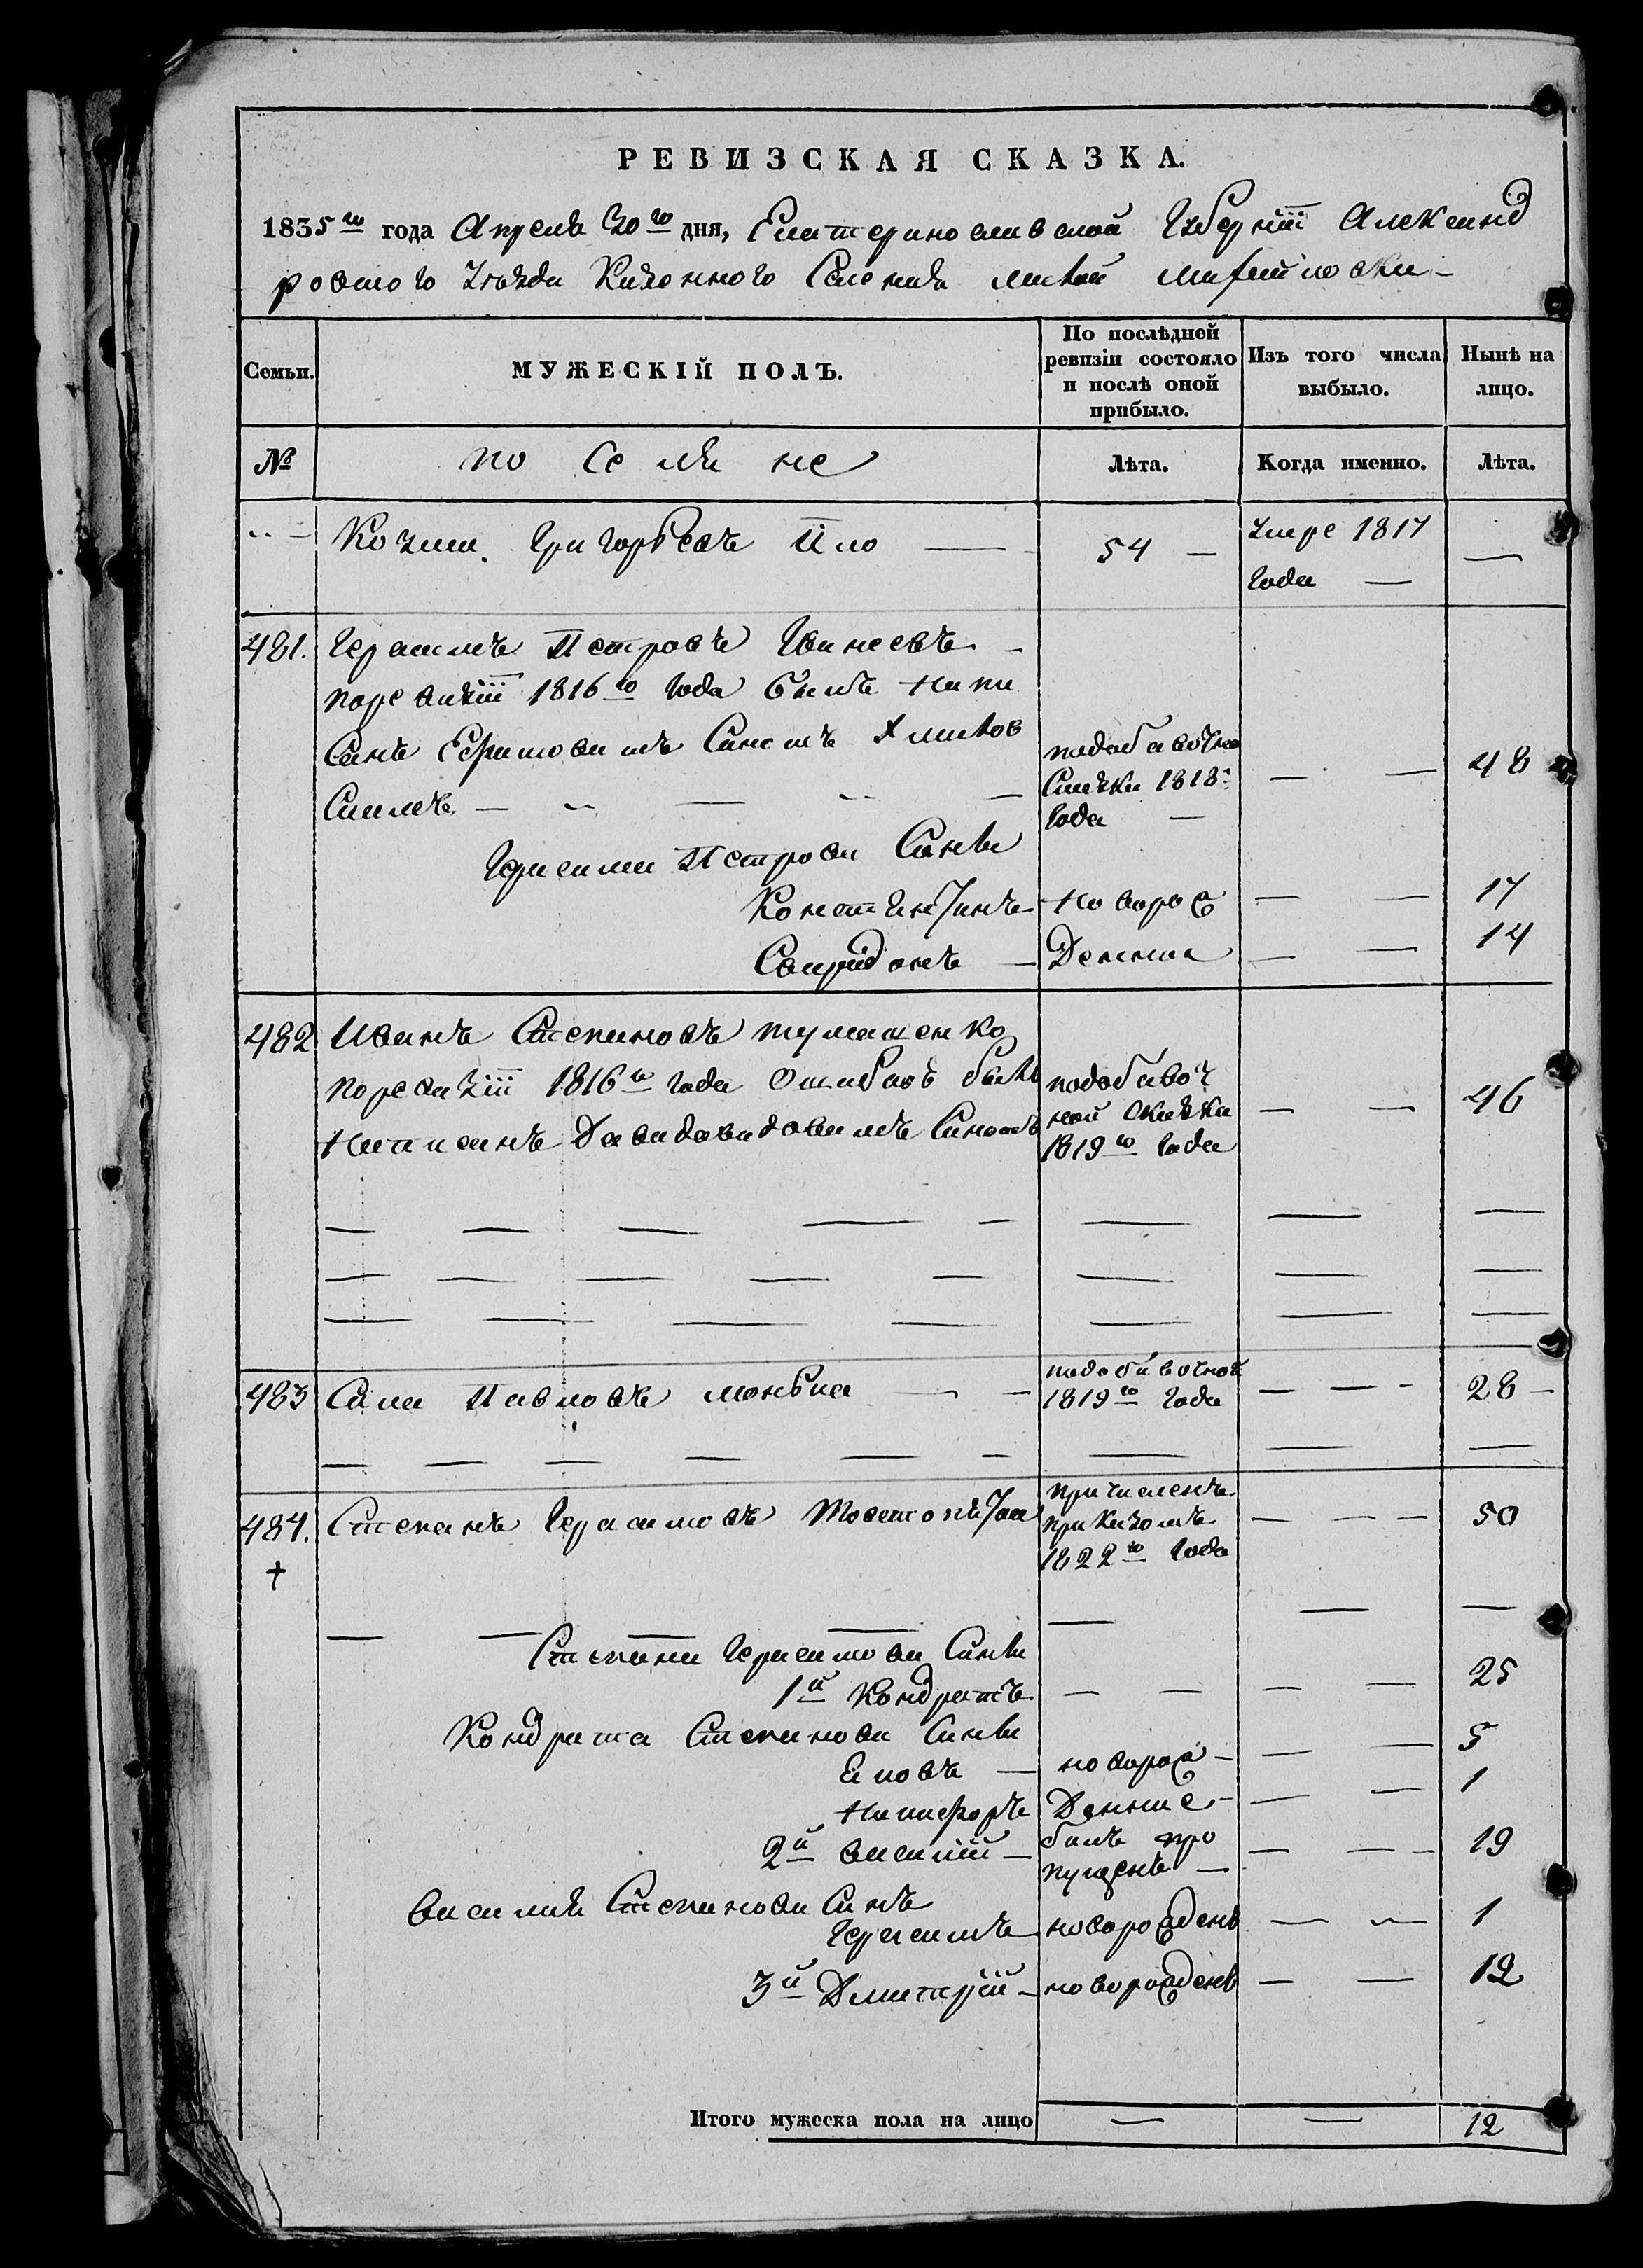 РЕВИЗСКАЯ СКАЗКА.
1835го года Апреля 30го дня, Екатеринославской Губерніи Александ
ровского Уѣзда Казенного Селения малой михайловки
Семьи. МУЖЕСКІЙ ПОЛЪ. По послѣдней ревизіи состояло и послѣ оной прибыло. Изъ того числа выбыло. Нынѣ на лицо.
№ Лѣта. Когда именно. Лѣта.
Козма Григорьевъ 54 — умре 1817 года — —
481. Герасимъ Петровъ
поревизіи 1816го года былъ напи
санъ Сыномъ
подобавочно
Скаски 1818го
года — — — 48
Герасима Петрова Сынъи
Константинъ новорож — — 17
Свиридонъ — Денниа — — 14
482 Иванъ Степановъ тумащенко
поревизіи 1816го года Ошибкоъ былъ
написанъ Сыномъ
подобавоч
ной Скаски
1819го года — — 46
483 Сава Павловъ — — подобавочной
1819го года — — - 28 —
484. Степанъ Герасимовъ
причисленъ
приказомъ
1822го года — — — 50
+
Степана Герасимова Сынъи
1й Кондратъ — — — — 25
Кондрата Степанова Сынъи
— новорож — — — 5
Никифоръ Денние — — — 1
2й василій — былъ про
пущенъ — — — - 19
василия Степанова Сынъ
Герасимъ новорожденъ — — 1
3й Дмитрій — новорожденъ — — 12
Итого мужеска пола на лицо — — 12